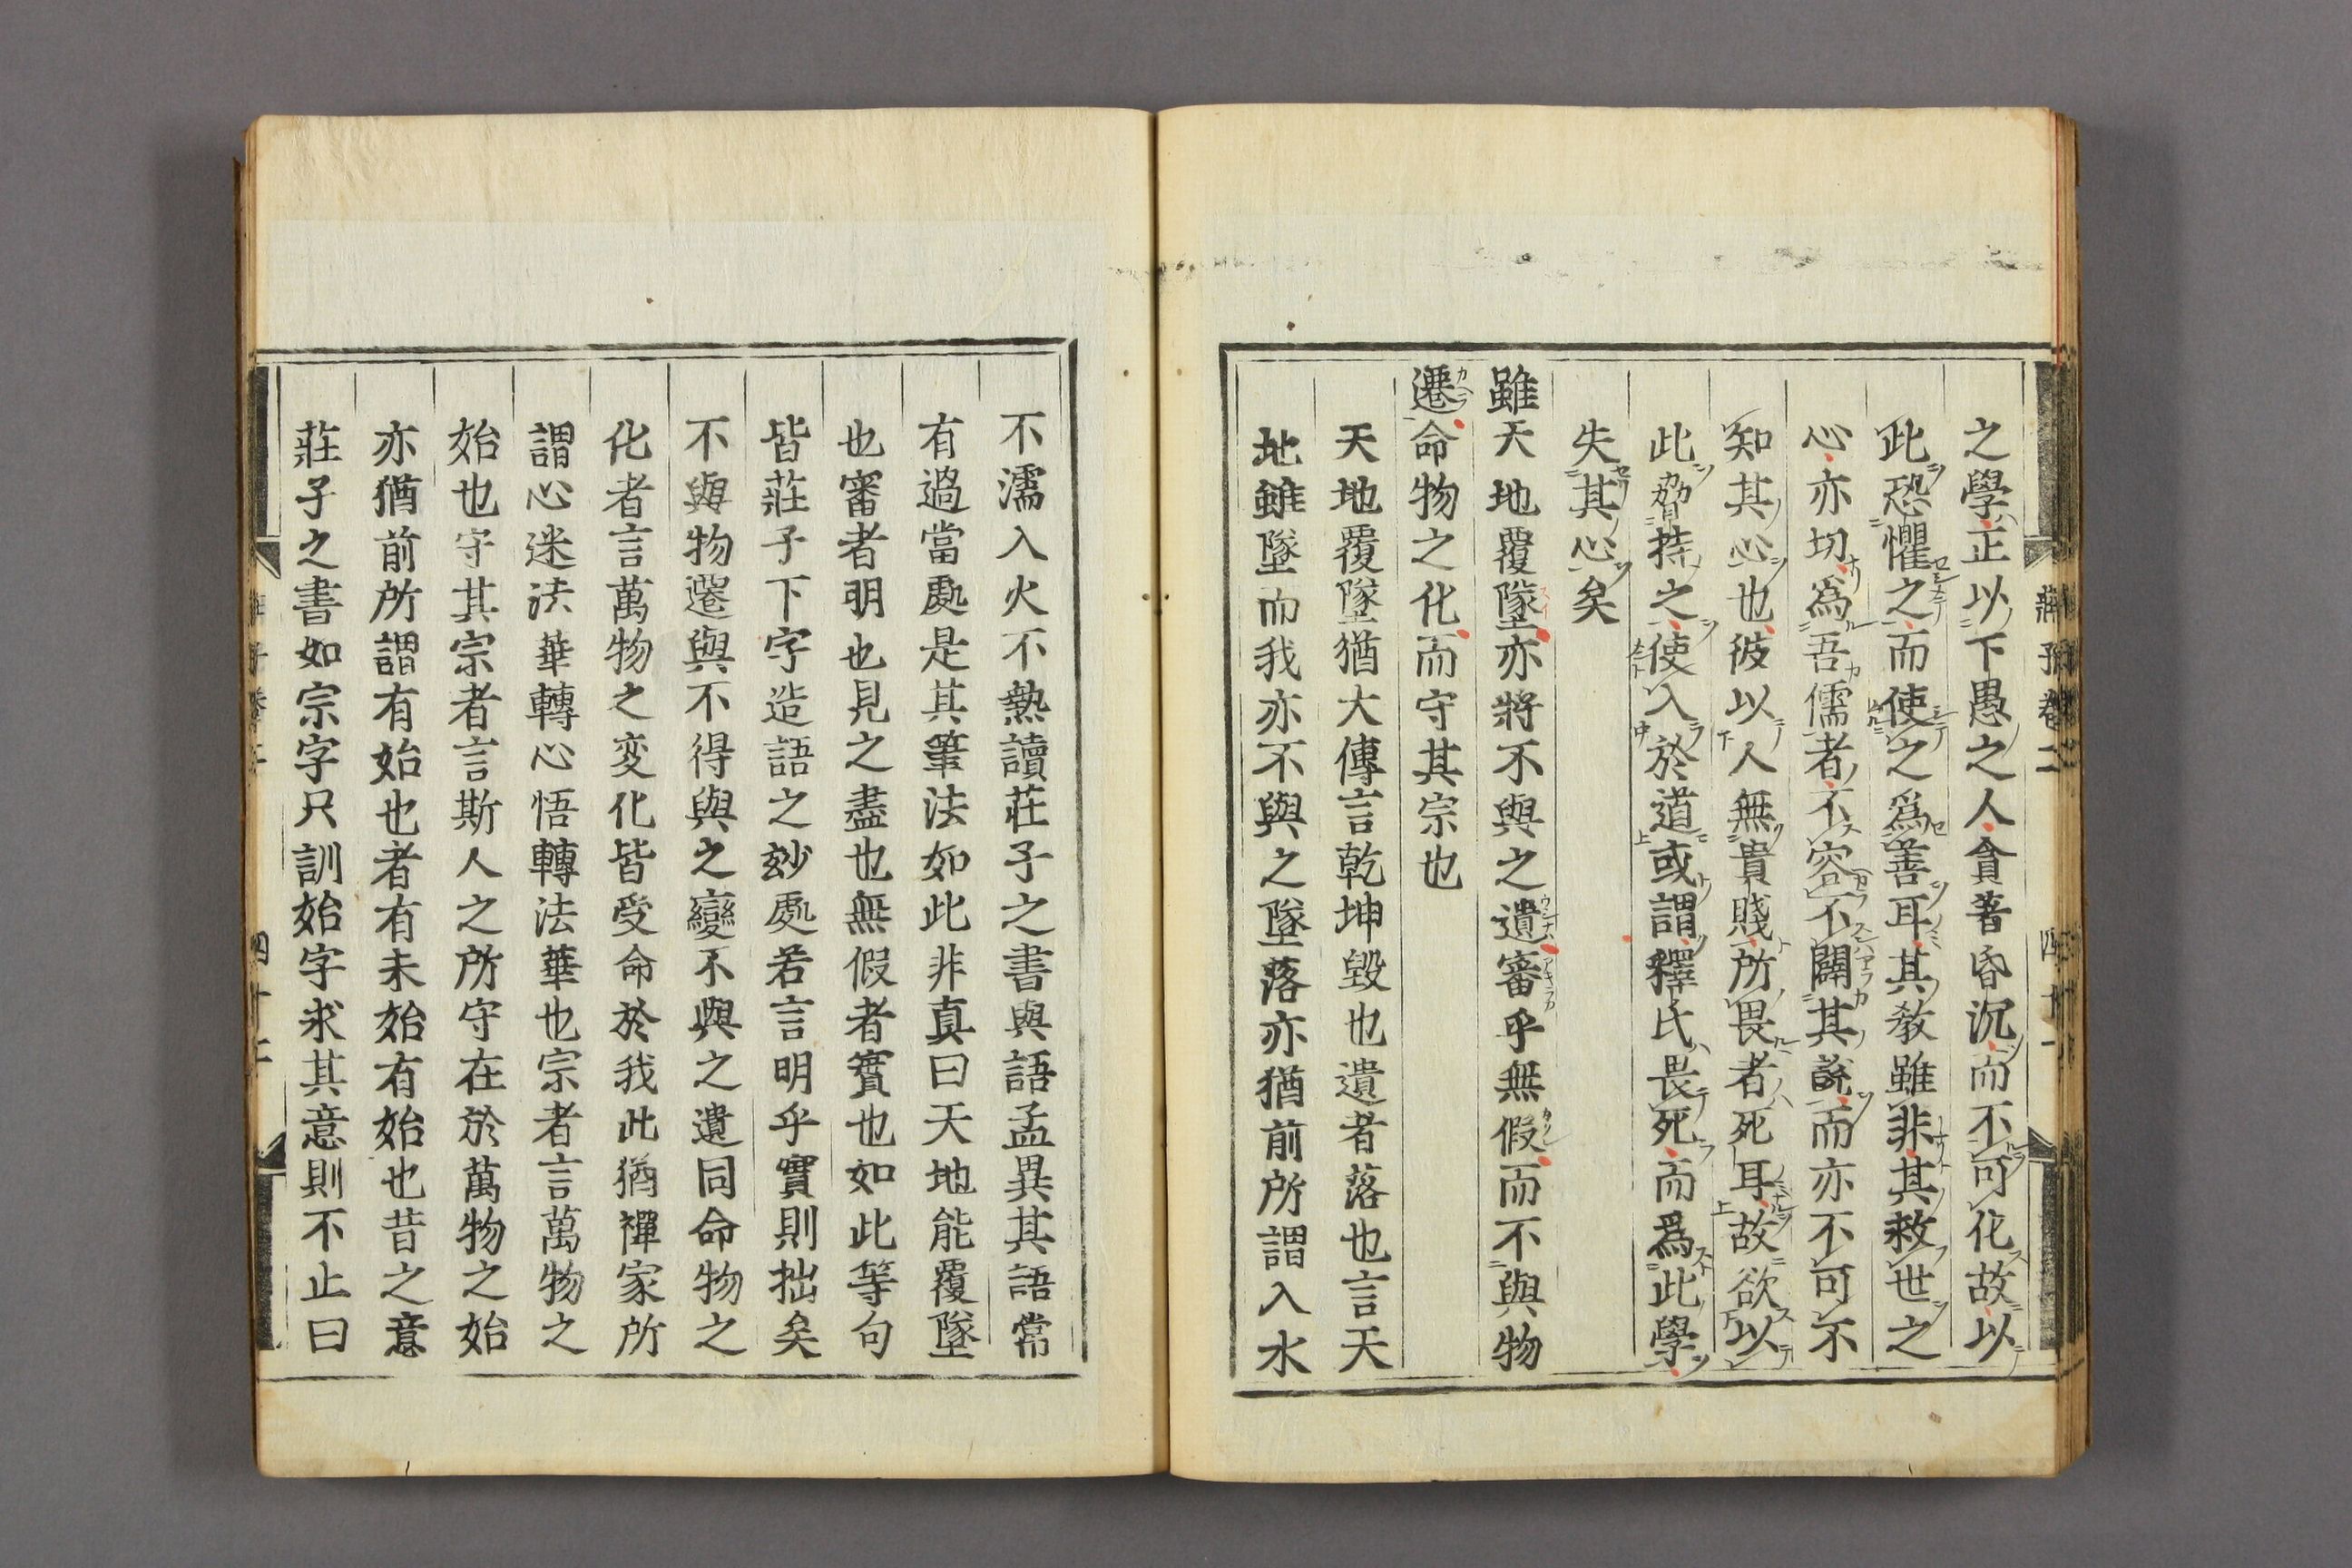 莊子卷二 四十一
之學止以下愚之人貪著昏沉而不可化故以
此恐懼之而使之爲善耳其教雖非其救世之
心亦切爲吾儒者不容不闢其說而亦不可不
知其心也彼以人無貴賤所畏者死耳故欲以
此脅持之使入於道或謂釋氏畏死而爲此學
失其心矣
雖天地覆墜亦將不與之遺審乎無假而不與物
遷命物之化而守其宗也
天地覆墜猶大傳言乾坤毀也遺者落也言天
地雖墜而我亦不與之墜落亦猶前所謂入水
不濡入火不熱讀莊子之書與語孟異其語常
有過當處是其筆法如此非真曰天地能覆墜
也審者明也見之盡也無假者實也如此等句
皆莊子下字造語之玅處若言明乎實則拙矣
不與物遷與不得與之變不與之遺同命物之
化者言萬物之変化皆受命於我此猶禪家所
謂心迷法華轉心悟轉法華也宗者言萬物之
始也守其宗者言斯人之所守在於萬物之始
亦猶前所謂有始也者有未始有始也昔之意
莊子之書如宗字只訓始字求其意則不止曰
四十二